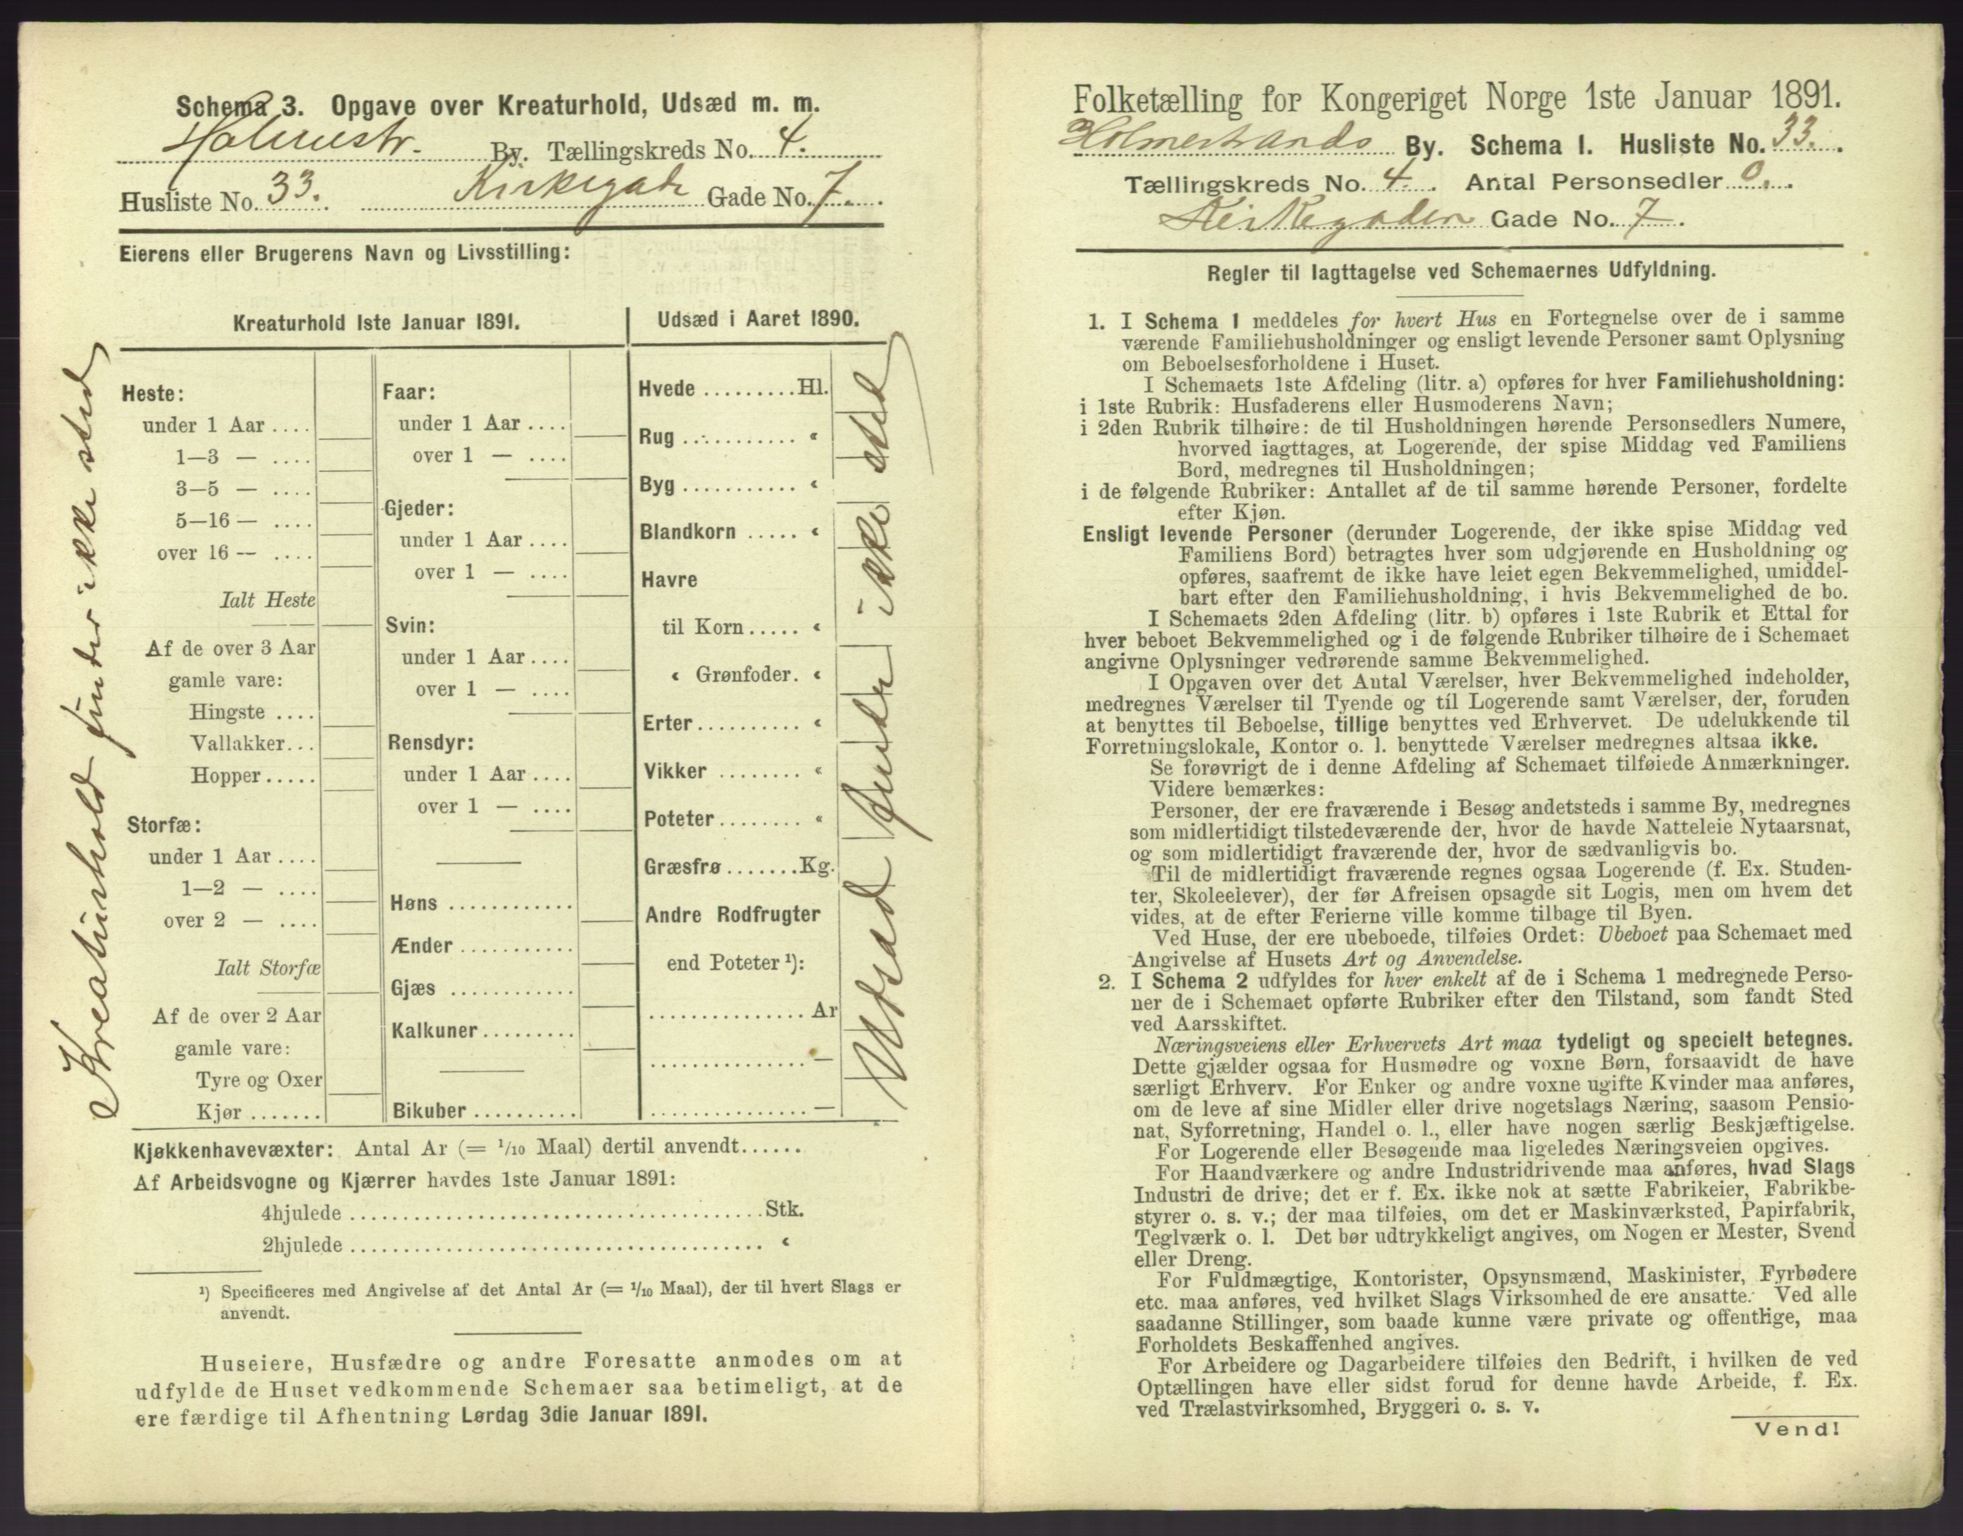 Schema 3. Opgave over Kreaturhold, Udsæd m. m.
Holmestr. By. Tællingskreds No. 4.
Husliste No. 33. Kirkegade Gade No. 7.
Eierens eller Brugerens Navn og Livsstilling:
Kreaturhold 1ste Januar 1891.
Heste:
under 1 Aar ....
1—3 — ....
3—5 — ....
5—16 — ....
over 16 — ....
Ialt Heste
Af de over 3 Aar
gamle vare:
Hingste ....
Vallakker...
Hopper.....
Storfæ:
under 1 Aar ....
1—2 — ....
over 2 — ....
Ialt Storfæ
Af de over 2 Aar
gamle vare:
Tyre og Oxer
Kjør .......
Faar:
under 1 Aar ....
over 1 — ....
Gjeder:
under 1 Aar ....
over 1 — ....
Svin:
under 1 Aar ....
over 1 — ....
Rensdyr:
under 1 Aar ....
over 1 — ....
Høns ............
Ænder ...........
Gjæs ............
Kalkuner.........
Bikuber ..........
Udsæd i Aaret 1890.
Hvede .........Hl.
Rug ........... "
Byg ........... "
Blandkorn ..... "
Havre
til Korn..... "
" Grønfoder. "
Erter.......... "
Vikker ........ "
Poteter........ "
Græsfrø.......Kg.
Andre Rodfrugter
end Poteter ¹):
............... Ar
............... —
............... —
Kreaturhold finder ikke sted
Udsæd finder ikke sted
Kjøkkenhavevæxter: Antal Ar (= 1/10 Maal) dertil anvendt......
Af Arbeidsvogne og Kjærrer havdes 1ste Januar 1891:
4hjulede ........................................Stk.
2hjulede ........................................ "
¹) Specificeres med Angivelse af det Antal Ar (= 1/10 Maal), der til hvert Slags er
anvendt.
Huseiere, Husfædre og andre Foresatte anmodes om at
udfylde de Huset vedkommende Schemaer saa betimeligt, at de
ere færdige til Afhentning Lørdag 3die Januar 1891.
Folketælling for Kongeriget Norge 1ste Januar 1891.
Holmestrands By. Schema I. Husliste No. 33.
Tællingskreds No. 4. Antal Personsedler 0.
Kirkegaden Gade No. 7.
Regler til Iagttagelse ved Schemaernes Udfyldning.
1. I Schema 1 meddeles for hvert Hus en Fortegnelse over de i samme
værende Familiehusholdninger og ensligt levende Personer samt Oplysning
om Beboelsesforholdene i Huset.
I Schemaets 1ste Afdeling (litr. a) opføres for hver Familiehusholdning:
i 1ste Rubrik: Husfaderens eller Husmoderens Navn;
i 2den Rubrik tilhøire: de til Husholdningen hørende Personsedlers Numere,
hvorved iagttages, at Logerende, der spise Middag ved Familiens
Bord, medregnes til Husholdningen;
i de følgende Rubriker: Antallet af de til samme hørende Personer, fordelte
efter Kjøn.
Ensligt levende Personer (derunder Logerende, der ikke spise Middag ved
Familiens Bord) betragtes hver som udgjørende en Husholdning og
opføres, saafremt de ikke have leiet egen Bekvemmelighed, umiddel-
bart efter den Familiehusholdning, i hvis Bekvemmelighed de bo.
I Schemaets 2den Afdeling (litr. b) opføres i 1ste Rubrik et Ettal for
hver beboet Bekvemmelighed og i de følgende Rubriker tilhøire de i Schemaet
angivne Oplysninger vedrørende samme Bekvemmelighed.
I Opgaven over det Antal Værelser, hver Bekvemmelighed indeholder,
medregnes Værelser til Tyende og til Logerende samt Værelser, der, foruden
at benyttes til Beboelse, tillige benyttes ved Erhvervet. De udelukkende til
Forretningslokale, Kontor o. l. benyttede Værelser medregnes altsaa ikke.
Se forøvrigt de i denne Afdeling af Schemaet tilføiede Anmærkninger.
Videre bemærkes:
Personer, der ere fraværende i Besøg andetsteds i samme By, medregnes
som midlertidigt tilstedeværende der, hvor de havde Natteleie Nytaarsnat,
og som midlertidigt fraværende der, hvor de sædvanligvis bo.
Til de midlertidigt fraværende regnes ogsaa Logerende (f. Ex. Studen-
ter, Skoleelever), der før Afreisen opsagde sit Logis, men om hvem det
vides, at de efter Ferierne ville komme tilbage til Byen.
Ved Huse, der ere ubeboede, tilføies Ordet: Ubeboet paa Schemaet med
Angivelse af Husets Art og Anvendelse.
2. I Schema 2 udfyldes for hver enkelt af de i Schema 1 medregnede Perso-
ner de i Schemaet opførte Rubriker efter den Tilstand, som fandt Sted
ved Aarsskiftet.
Næringsveiens eller Erhvervets Art maa tydeligt og specielt betegnes.
Dette gjælder ogsaa for Husmødre og voxne Børn, forsaavidt de have
særligt Erhverv. For Enker og andre voxne ugifte Kvinder maa anføres,
om de leve af sine Midler eller drive nogetslags Næring, saasom Pensio-
nat, Syforretning, Handel o. l., eller have nogen særlig Beskjæftigelse.
For Logerende eller Besøgende maa ligeledes Næringsveien opgives.
For Haandværkere og andre Industridrivende maa anføres, hvad Slags
Industri de drive; det er f. Ex. ikke nok at sætte Fabrikeier, Fabrikbe-
styrer o. s. v.; der maa tilføies, om det er Maskinværksted, Papirfabrik,
Teglværk o. l. Det bør udtrykkeligt angives, om Nogen er Mester, Svend
eller Dreng.
For Fuldmægtige, Kontorister, Opsynsmænd, Maskinister, Fyrbødere
etc. maa anføres, ved hvilket Slags Virksomhed de ere ansatte. Ved alle
saadanne Stillinger, som baade kunne være private og offentlige, maa
Forholdets Beskaffenhed angives.
For Arbeidere og Dagarbeidere tilføies den Bedrift, i hvilken de ved
Optællingen have eller sidst forud for denne havde Arbeide, f. Ex.
ved Trælastvirksomhed, Bryggeri o. s. v.
Vend!